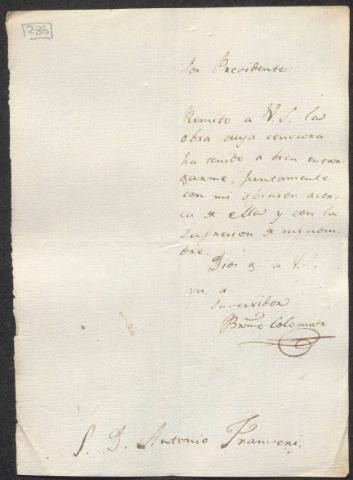 286
Sor Presidente
Remito a V. S. la
obra cuya censura
ha tenido a bien encar
garme, juntamente
con mi opinion acer
ca de ella y con la
supresion de mi nom
bre.
Dios g a V.
m a
su servidor
S. D. Antonio